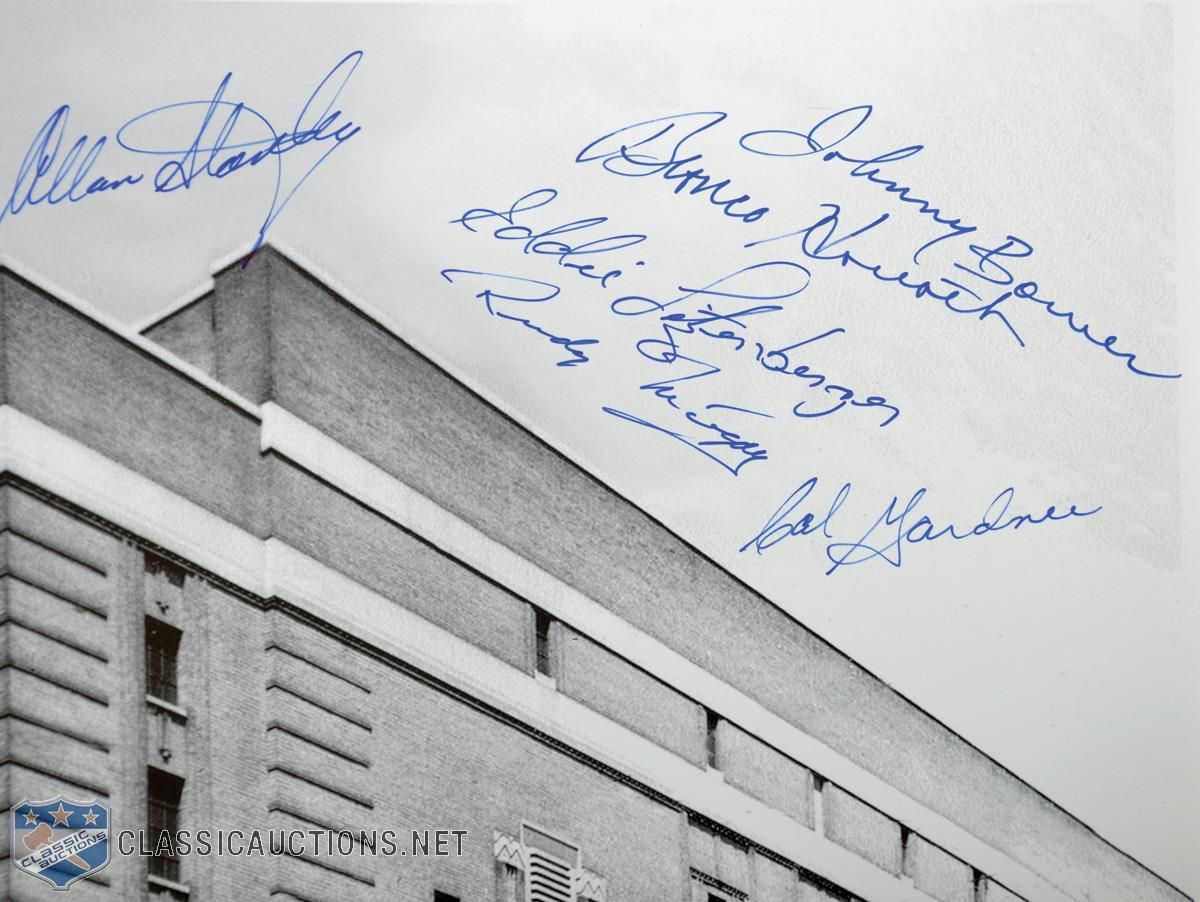 Allan Stanley
Johnny Bower
Bronco Horvath
Eddie Litzenberger
Rudy Migay
Cal Gardner
CLASSIC AUCTIONS
CLASSICAUCTIONS.NET